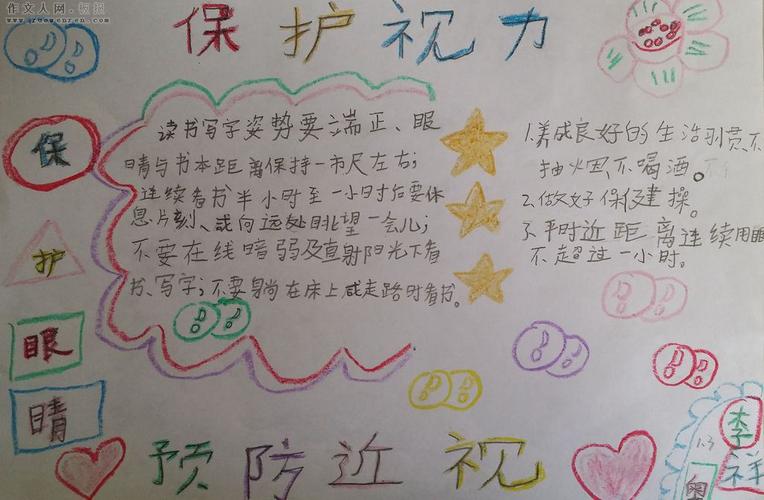 作文人网·板报
www.zuowenren.com
保护视力
保
护
眼
睛
读书写字姿势要端正、眼
睛与书本距离保持一市尺左右;
连续看书半小时至一小时后要休
息片刻、或向远处眺望一会儿;
不要在线暗弱及直射阳光下看
书、写字;不要躺在床上或走路时看书。
1.养成良好的生活习惯不
抽烟不喝酒。
2.做好保健操。
3.平时近距离连续用眼
不超过一小时。
预防近视
1.3
李
祥
奥